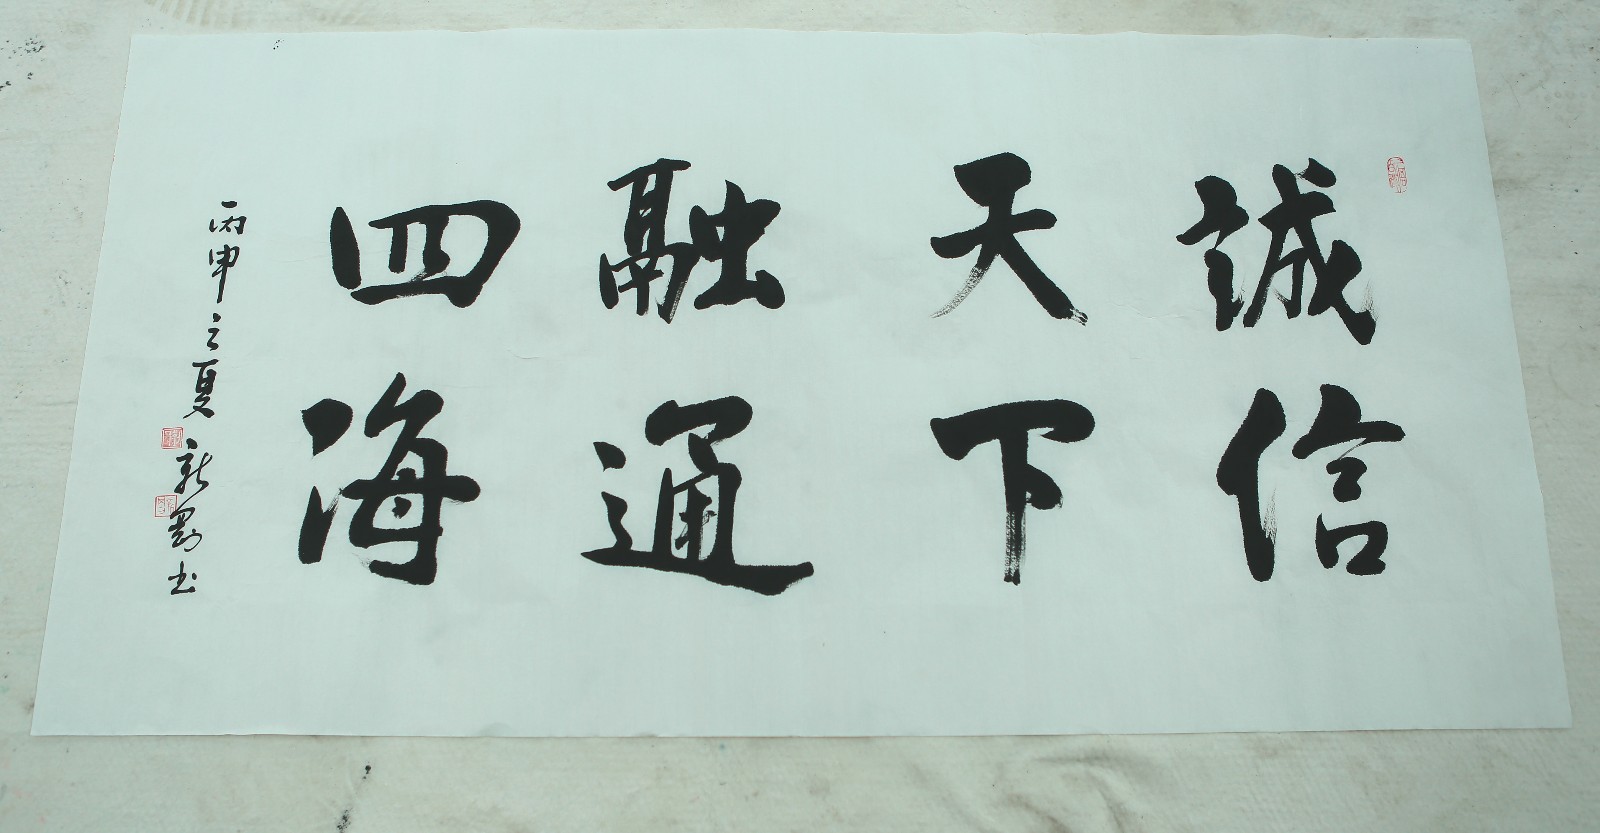 誠信
天下
融通
四海
丙申之夏 新勇书